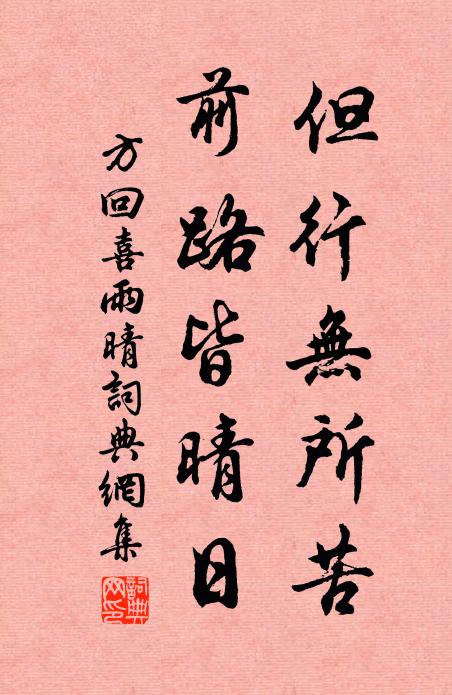 但行無所苦
前路皆晴日
方回喜雨晴詞典網集
詞典
網印